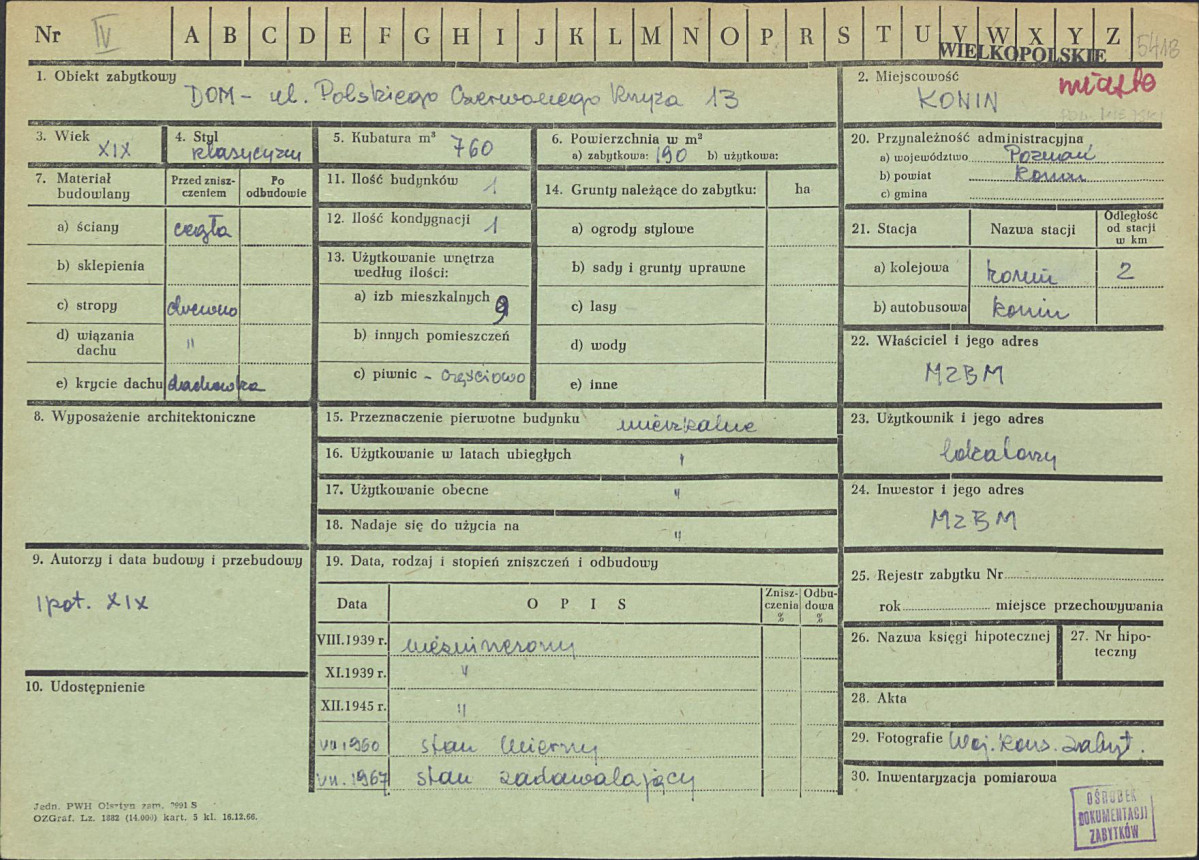 Nr IV A B C D E F G H I J K L M N O P R S T U V W X Y Z
WIELKOPOLSKIE 5418
1. Obiekt zabytkowy
DOM - ul. Polskiego Czerwonego Krzyża 13
2. Miejscowość
miasto
KONIN
3. Wiek
XIX
4. Styl
klasycyzm
5. Kubatura m³ 760
6. Powierzchnia w m²
a) zabytkowa: 190 b) użytkowa:
20. Przynależność administracyjna
a) województwo Poznań
b) powiat Konin
c) gmina
7. Materiał budowlany
Przed zniszczeniem
Po odbudowie
a) ściany cegła
b) sklepienia
c) stropy drewno
d) wiązania dachu "
e) krycie dachu dachówka
11. Ilość budynków 1
12. Ilość kondygnacji 1
13. Użytkowanie wnętrza
według ilości:
a) izb mieszkalnych 9
b) innych pomieszczeń
c) piwnic - częściowo
14. Grunty należące do zabytku: ha
a) ogrody stylowe
b) sady i grunty uprawne
c) lasy
d) wody
e) inne
21. Stacja Nazwa stacji Odległość od stacji w km
a) kolejowa Konin 2
b) autobusowa Konin
22. Właściciel i jego adres
MZBM
8. Wyposażenie architektoniczne
15. Przeznaczenie pierwotne budynku mieszkalne
16. Użytkowanie w latach ubiegłych "
17. Użytkowanie obecne "
18. Nadaje się do użycia na "
23. Użytkownik i jego adres
lokatorzy
24. Inwestor i jego adres
MZBM
9. Autorzy i data budowy i przebudowy
I poł. XIX
19. Data, rodzaj i stopień zniszczeń i odbudowy
Data OPIS Zniszczenia % Odbudowa %
VIII.1939 r. niezniszczony
XI.1939 r. "
XII.1945 r. "
VII 1960 stan mierny
VII. 1967 stan zadawalający
25. Rejestr zabytku Nr
rok miejsce przechowywania
26. Nazwa księgi hipotecznej
27. Nr hipoteczny
10. Udostępnienie
28. Akta
29. Fotografie Woj. Kons. Zabyt.
30. Inwentaryzacja pomiarowa
Jedn. PWH Olsztyn zam. 2991 S
OZGraf. Lz. 1882 (14.000) kart. 5 kl. 16.12.66.
OŚRODEK
DOKUMENTACJI
ZABYTKÓW